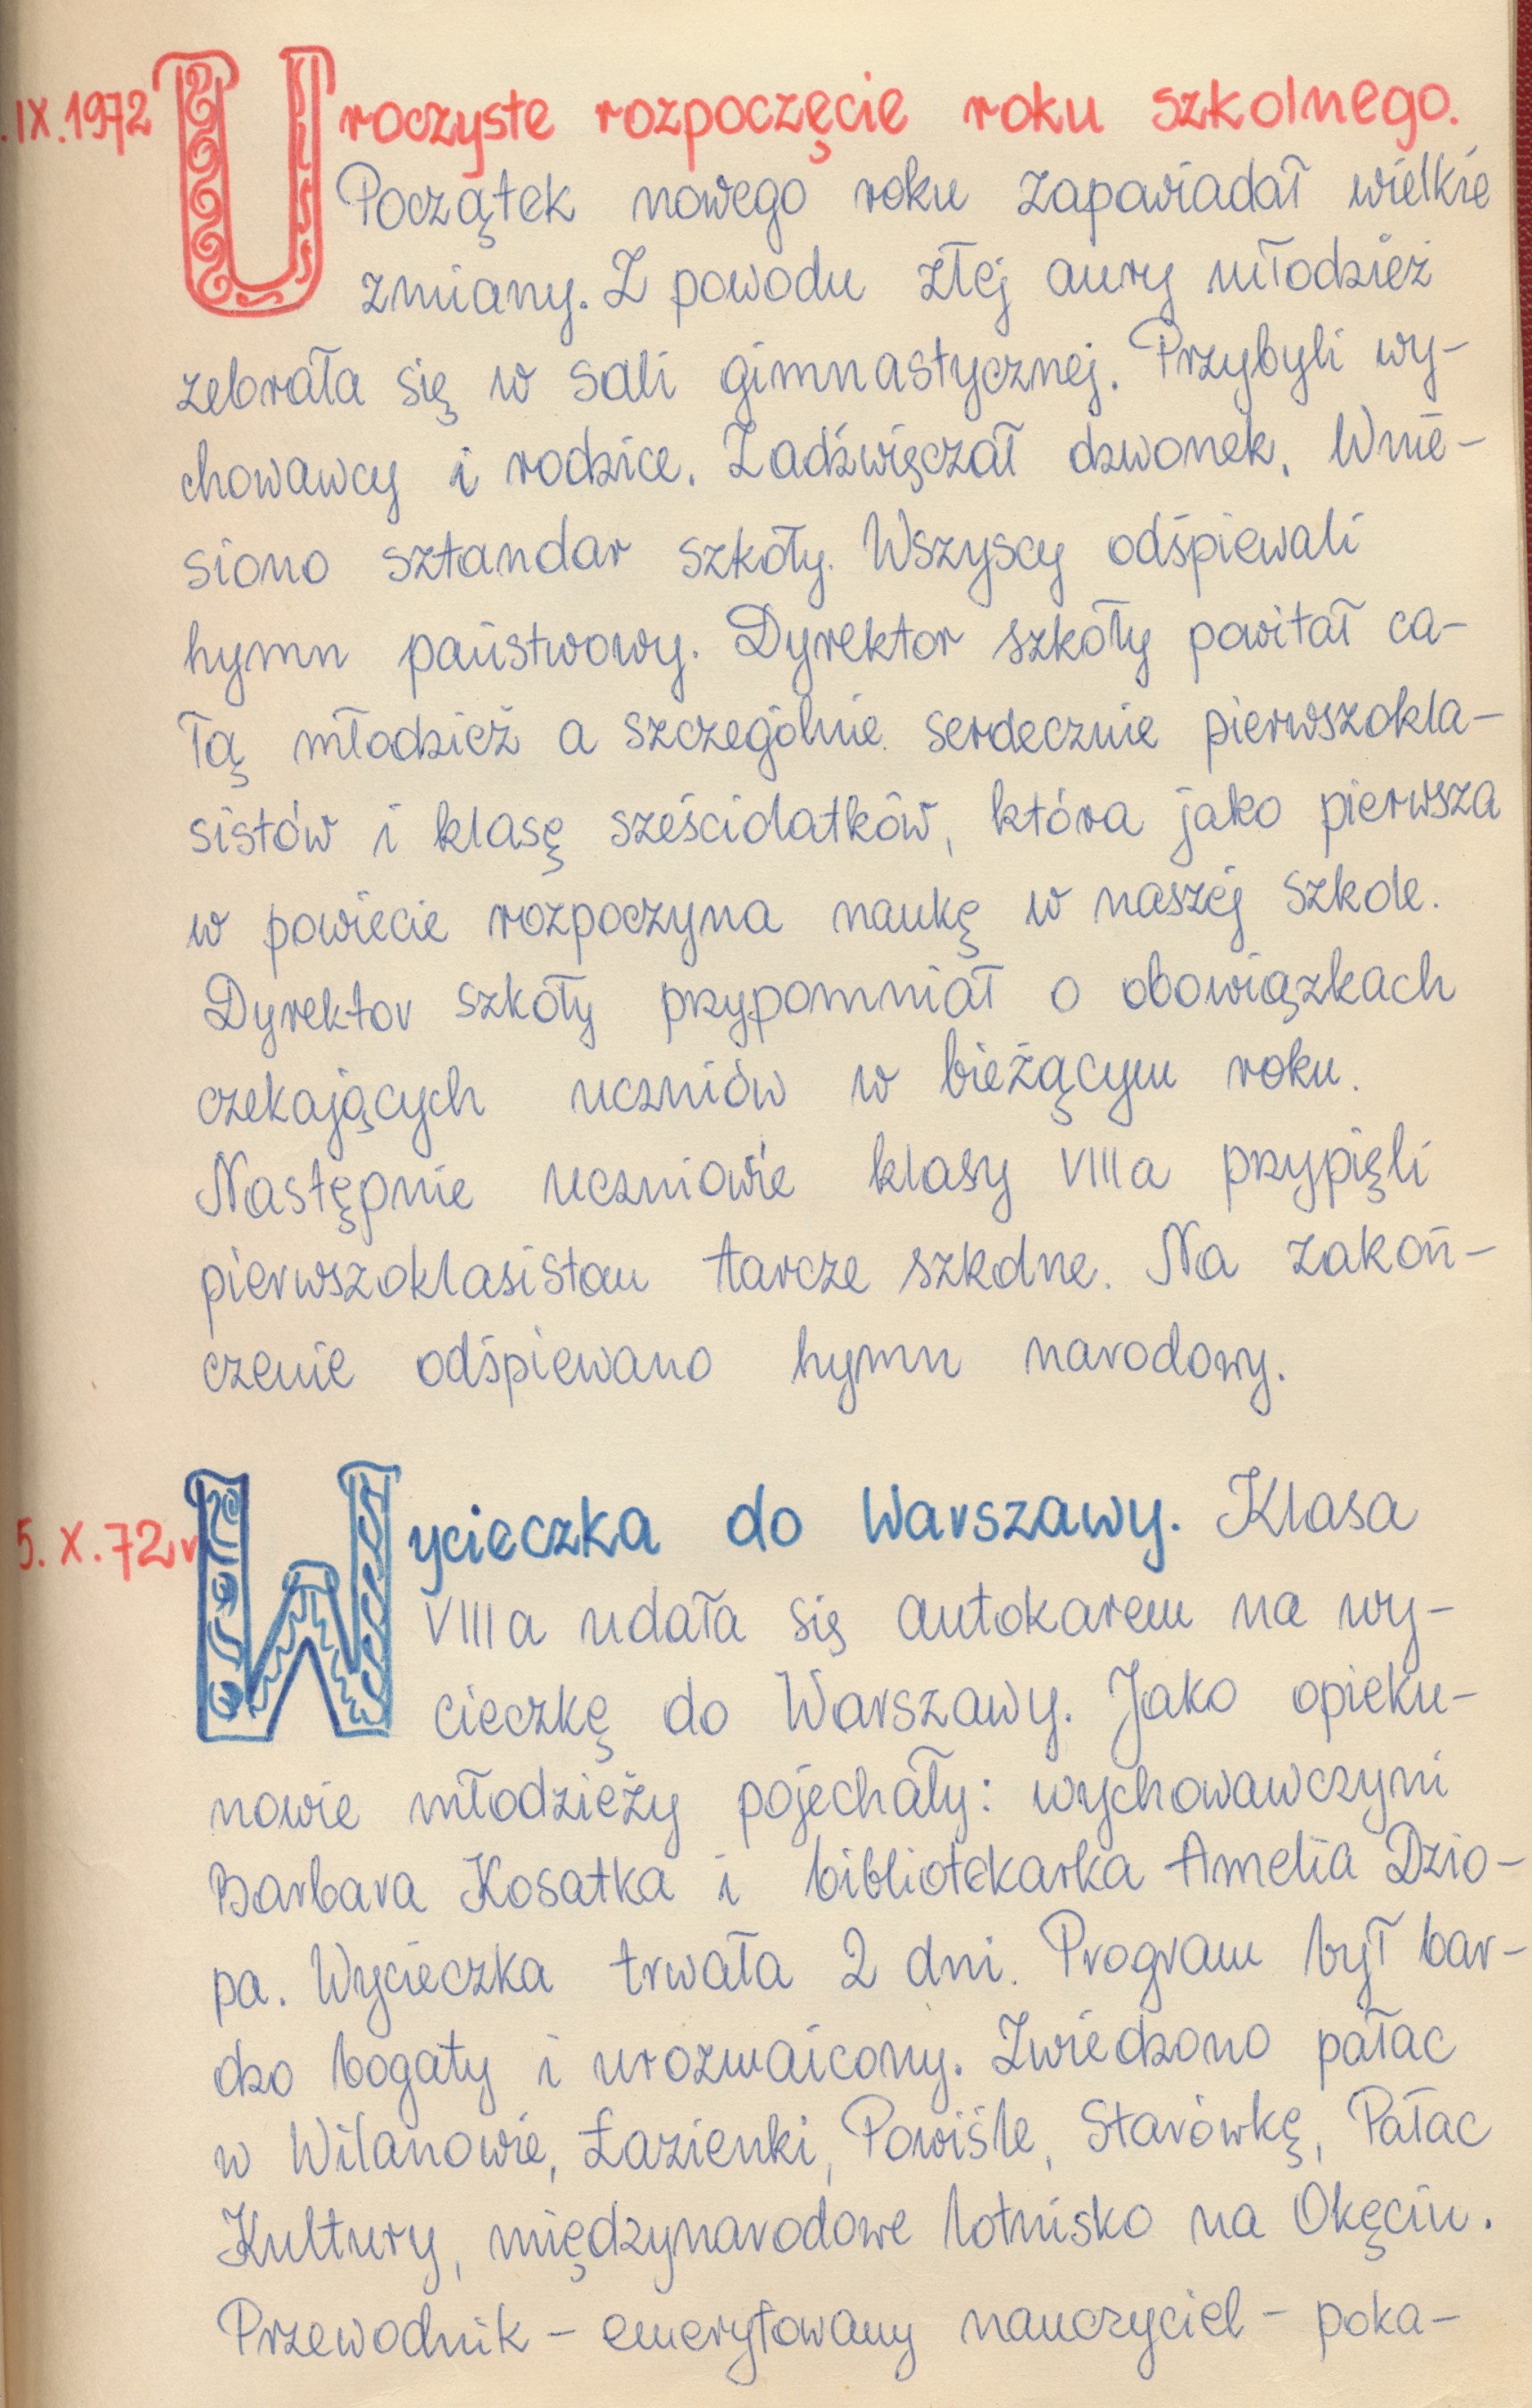 .IX.1972 Uroczyste rozpoczęcie roku szkolnego.
Początek nowego roku zapowiadał wielkie
zmiany. Z powodu złej aury młodzież
zebrała się w sali gimnastycznej. Przybyli wy-
chowawcy i rodzice. Zadźwięczał dzwonek. Wnie-
siono sztandar szkoły. Wszyscy odśpiewali
hymn państwowy. Dyrektor szkoły powitał ca-
łą młodzież a szczególnie serdecznie pierwszokla-
sistów i klasę sześciolatków, która jako pierwsza
w powiecie rozpoczyna naukę w naszej szkole.
Dyrektor szkoły przypomniał o obowiązkach
czekających uczniów w bieżącym roku.
Następnie uczniowie klasy VIIIa przypięli
pierwszoklasistom tarcze szkolne. Na zakoń-
czenie odśpiewano hymn narodowy.
5.X.72r Wycieczka do Warszawy. Klasa
VIIIa udała się autokarem na wy-
cieczkę do Warszawy. Jako opieku-
nowie młodzieży pojechały: wychowawczyni
Barbara Kosatka i bibliotekarka Amelia Dzio-
pa. Wycieczka trwała 2 dni. Program był bar-
dzo bogaty i urozmaicony. Zwiedzono pałac
w Wilanowie, Łazienki, Powiśle, Starówkę, Pałac
Kultury, międzynarodowe lotnisko na Okęciu.
Przewodnik – emerytowany nauczyciel – poka-